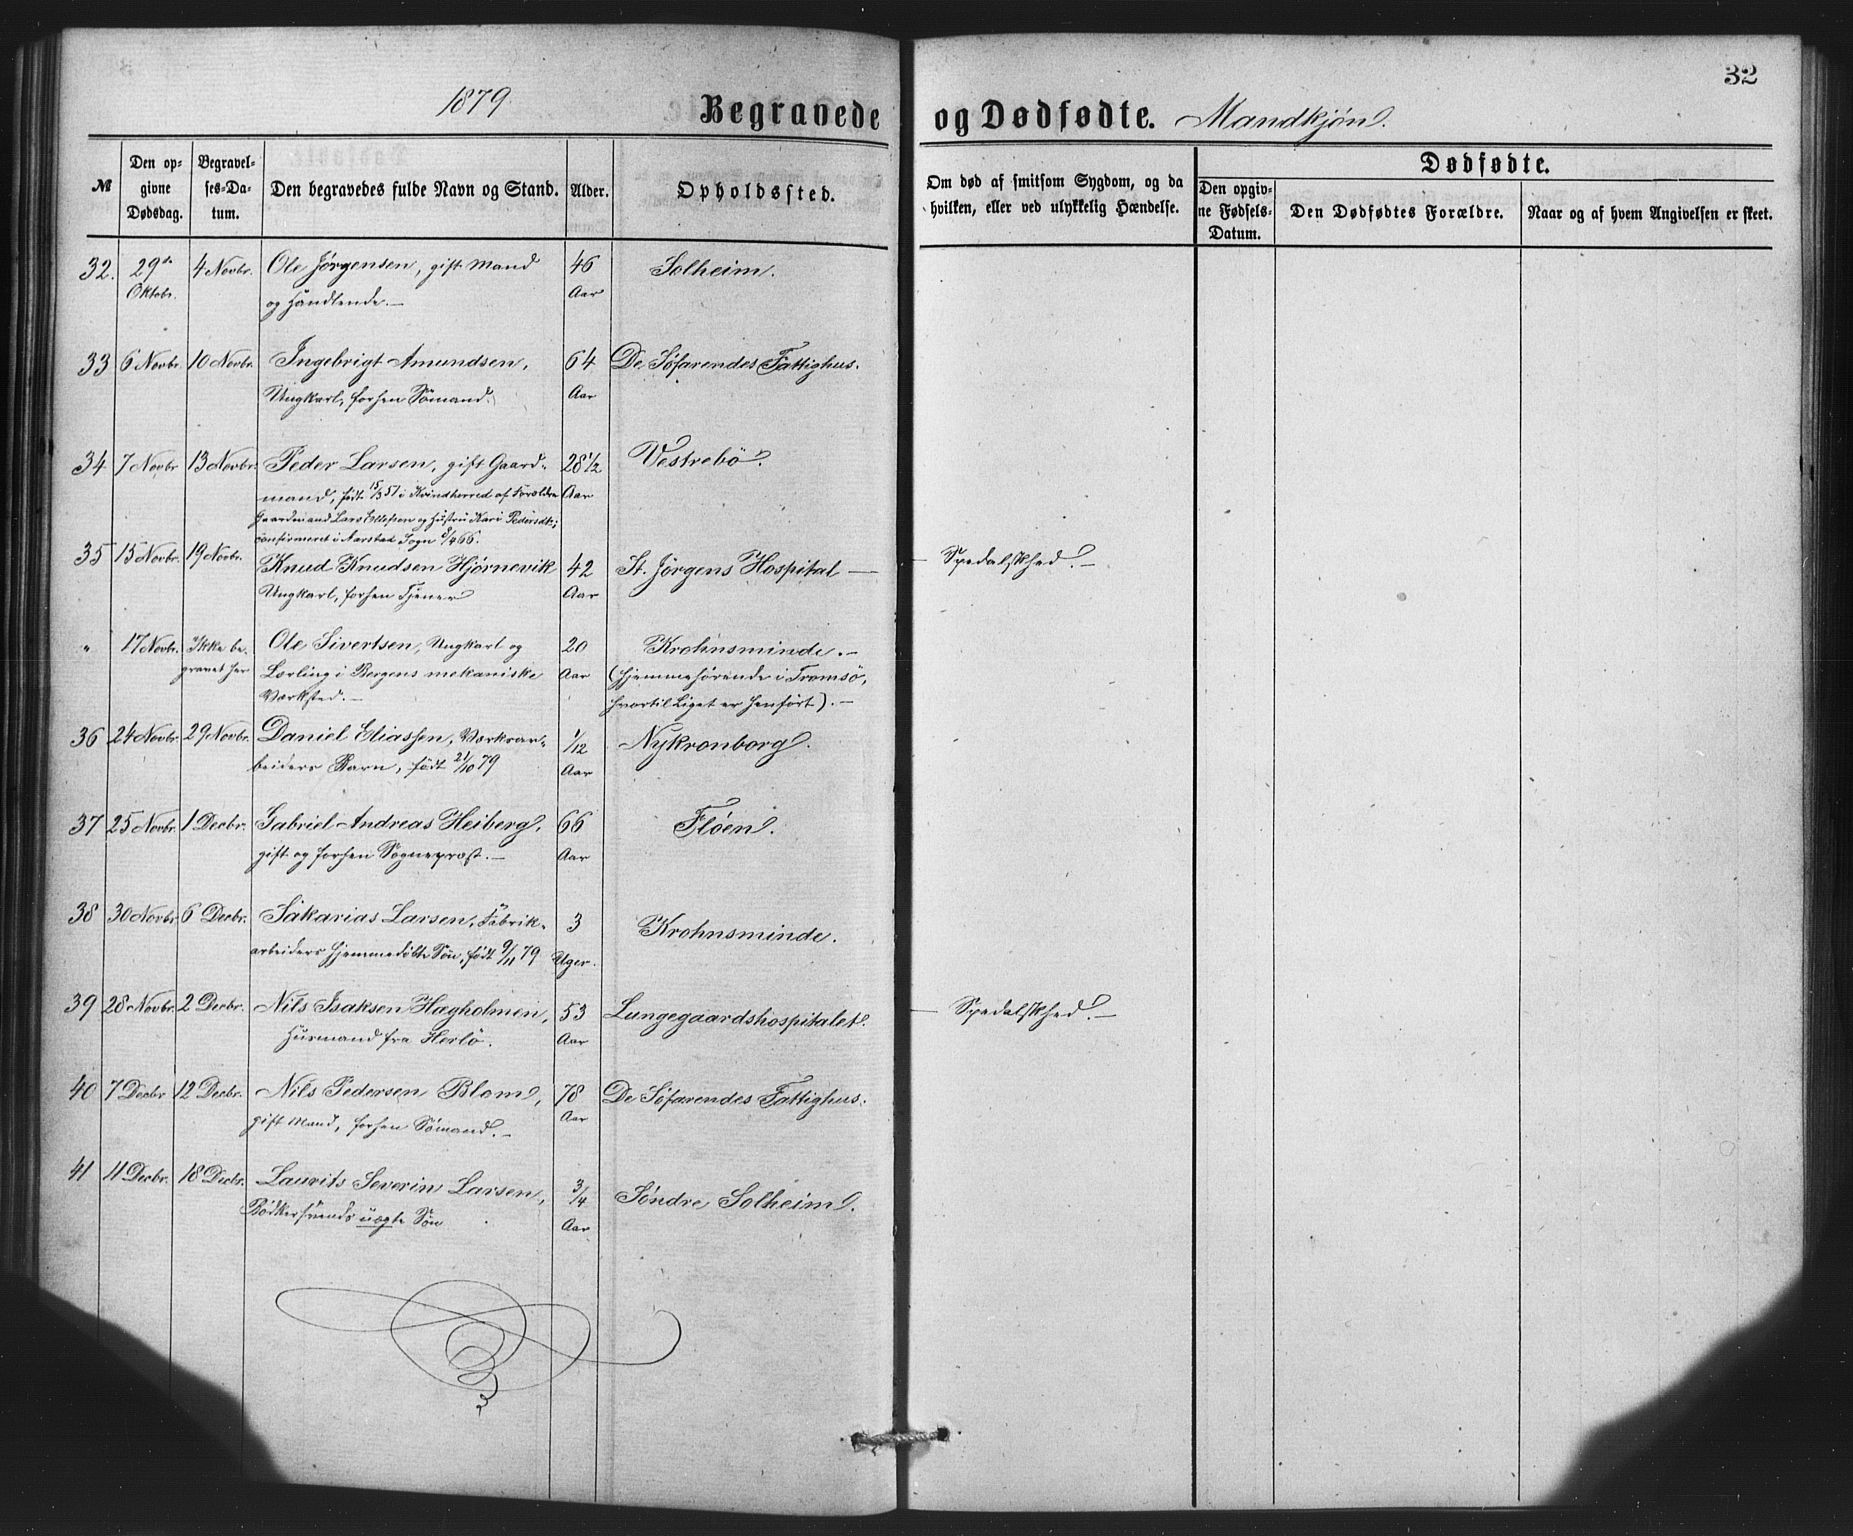 1879.
Begravede og Dødfødte. Mandkjøn.
32
№
Den opgivne Dødsdag.
Begravelses-Datum.
Den begravedes fulde Navn og Stand.
Alder.
Opholdssted.
Om død af smitsom Sygdom, og da hvilken, eller ved ulykkelig Hændelse.
Dødfødte.
Den opgivne Fødsels-Datum.
Den Dødfødtes Forældre.
Naar og af hvem Angivelsen er skeet.
32. 29de 4 Novbr. Ole Jørgensen, gift Mand 46 Solheim.
Oktobr. og Handlende.— Aar
33 6 Novbr. 10 Novbr. Ingebrigt Amundsen, 64 De Søfarendes Fattighus.
Ungkarl, forhen Sømand. Aar
34 7 Novbr 13 Novbr. Peder Larsen, gift Gaard- 28 1/2 Vestrebö.
mand, født 15/3 51 i Kvindherred af Forældre Aar
Gaardmand Lars Ellefsen og Hustru Kari Pedersdtr.;
confirmeret i Aarstad Sogn 8/4 66.
35 15 Novbr. 19 Novbr. Knud Knudsen Hjørnevik 42 St. Jørgens Hospital — Spedalskhed.—
Ungkarl, forhen Tjener Aar
" 17 Novbr. Ikke be- Ole Sivertsen, Ungkarl og 20 Krohnsminde.—
gravet her Lærling i Bergens mekaniske Aar (hjemmehørende i Tromsö,
Værksted.— hvortil Liget er henført).—
36 24 Novbr. 29 Novbr. Daniel Eliassen, Værksar- 1/12 Nykronborg.
beiders Barn, født 21/10 79 Aar
37 25 Novbr. 1 Decbr. Gabriel Andreas Heiberg, 66 Fløen.
gift og forhen Sogneprest.— Aar
38 30 Novbr. 6 Decbr. Sakarias Larsen, Fabrik- 3 Krohnsminde.
arbeiders hjemmedöbte Sön, født 9/11 79 Uger.
39 28 Novbr. 2 Decbr. Nils Isaksen Hægholmen, 53 Lungegaardshospitalet. — Spedalskhed.—
Husmand fra Herlö. Aar
40 7 Decbr 12 Decbr. Nils Pedersen Blom, 78 De Søfarendes Fattighus.
gift Mand, forhen Sømand.— Aar
41 11 Decbr. 18 Decbr. Laurits Severin Larsen, 3/4 Söndre Solheim.
Bödkersvends uægte Sön Aar